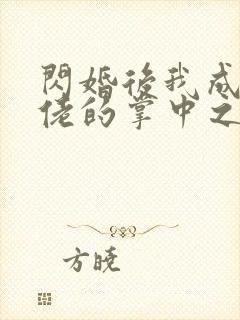 閃婚後我成
佬的掌中之
方曉